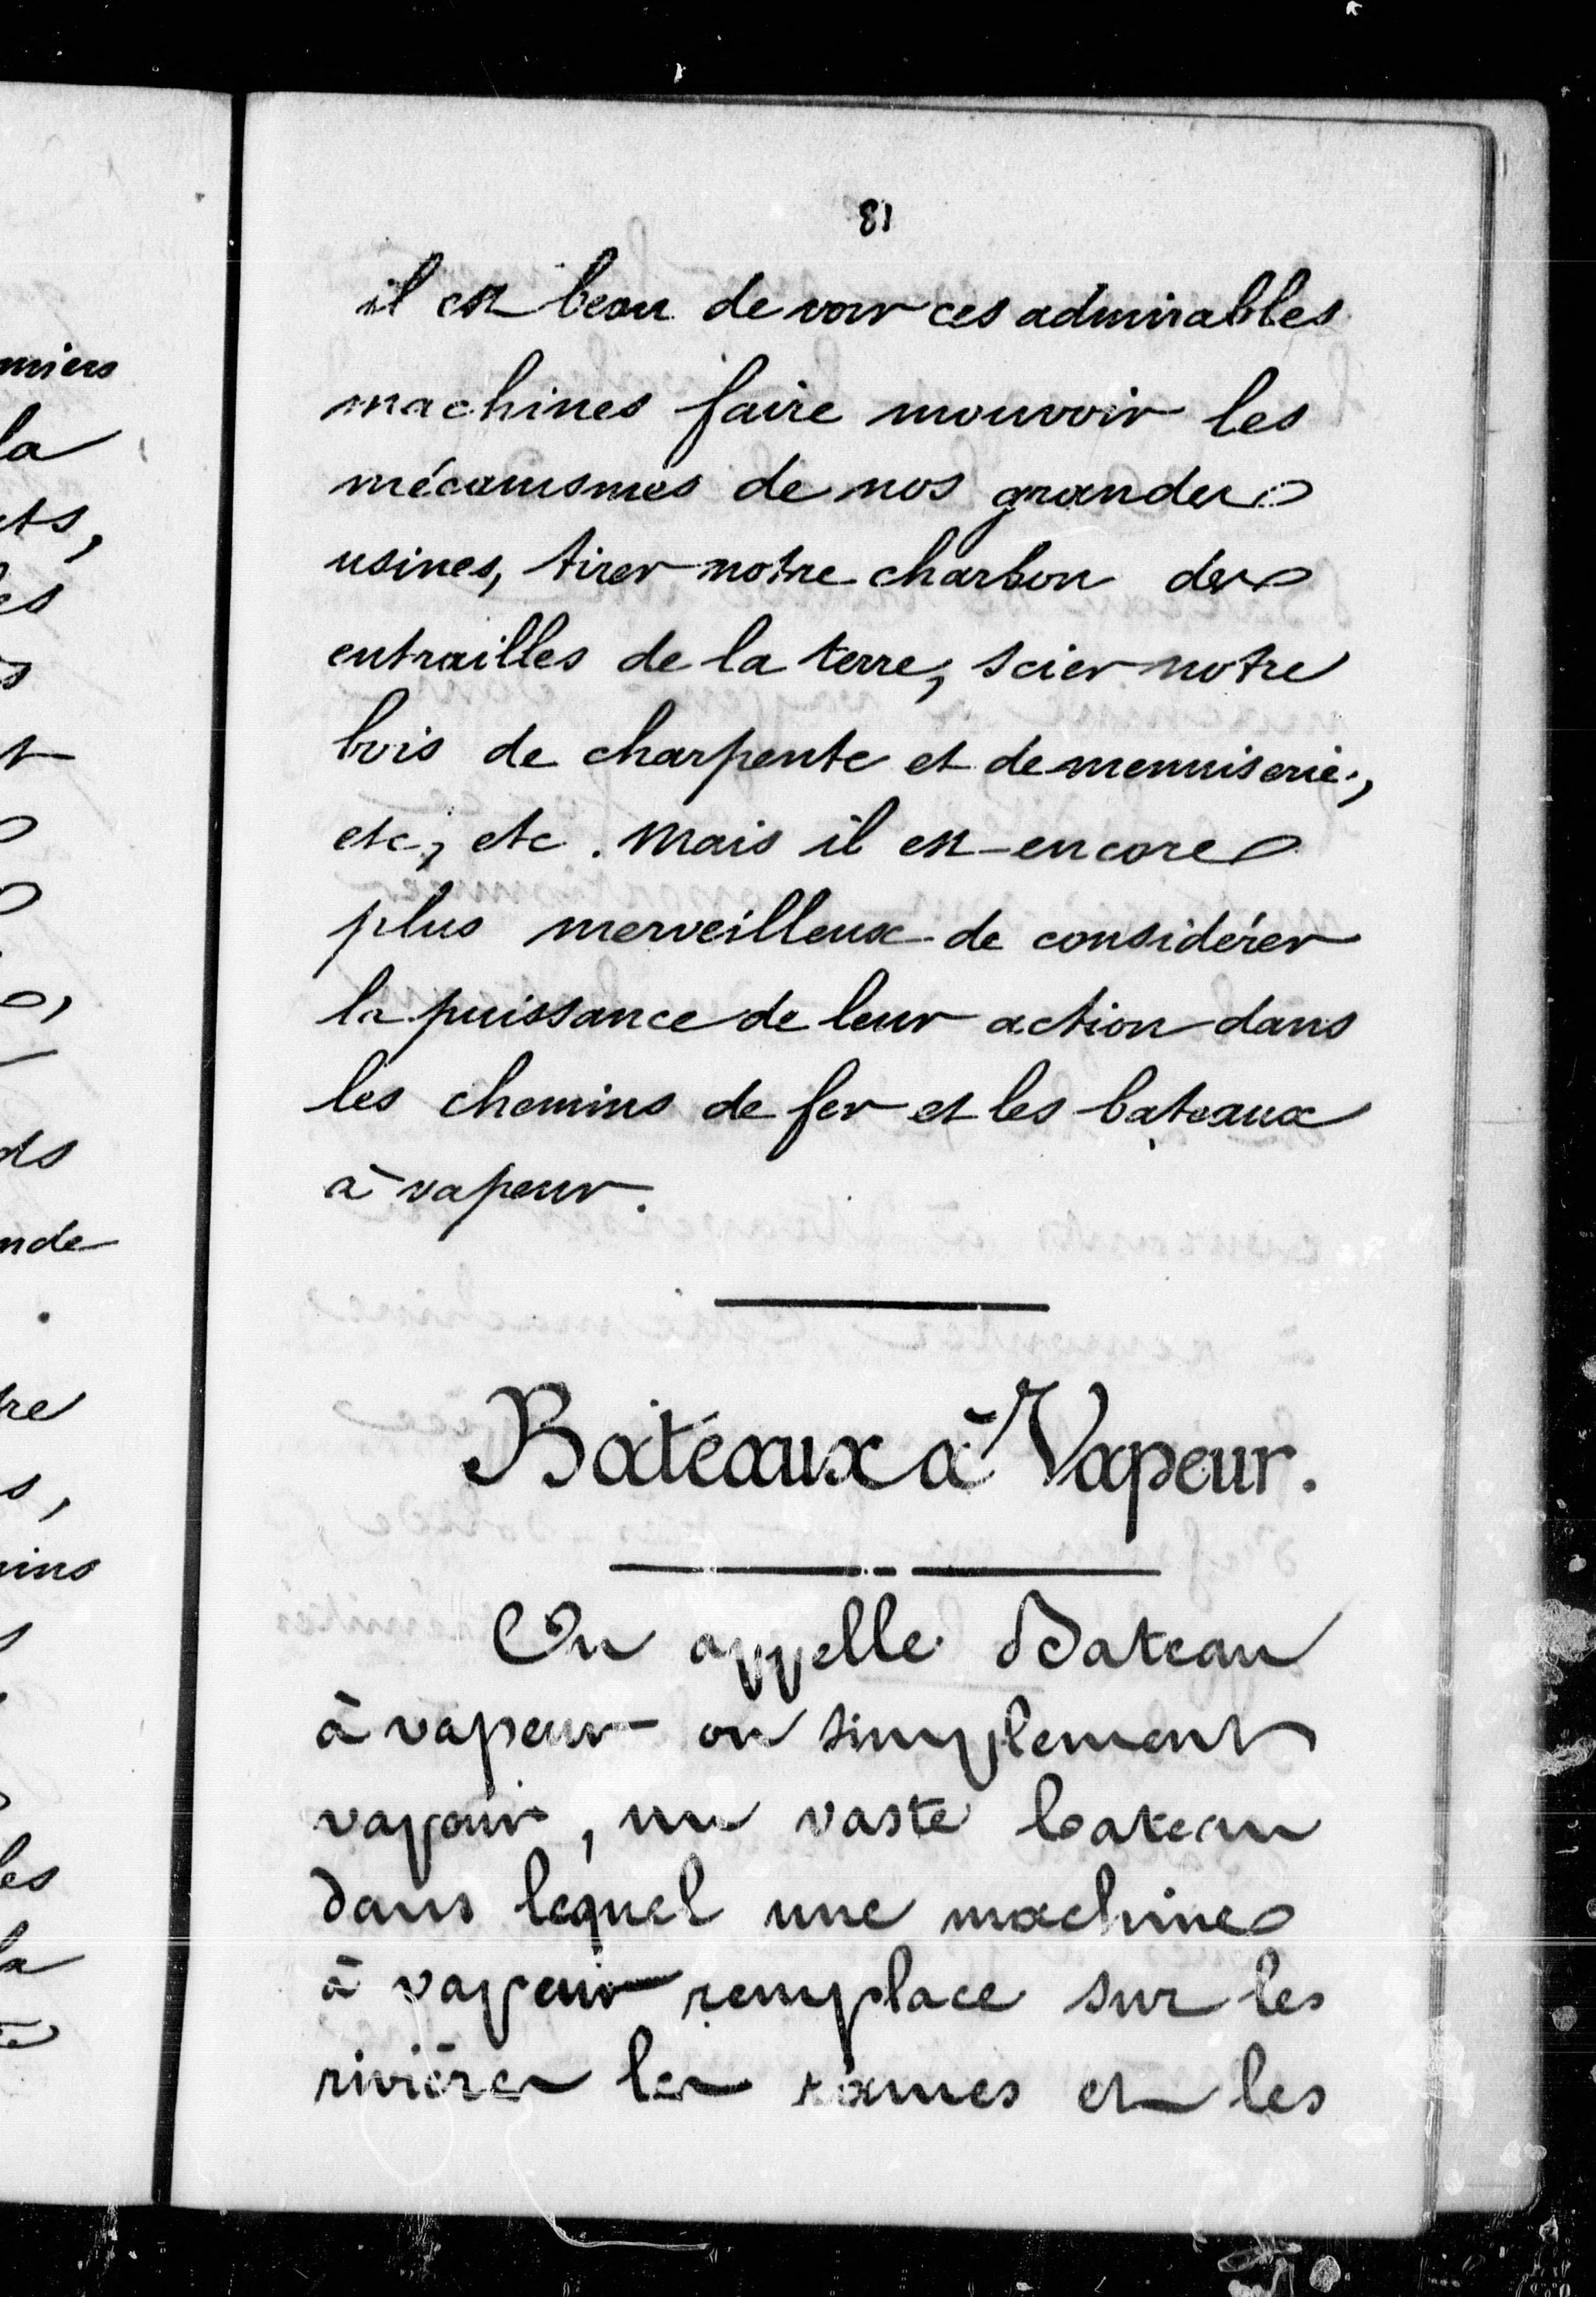 81
il est beau de voir ces admirables
machines faire mouvoir les
mécanismes de nos grandes
usines, tirer notre charbon des
entrailles de la terre, scier notre
bois de charpente et de menuiserie,
etc, etc. Mais il est encore
plus merveilleux de considérer
la puissance de leur action dans
les chemins de fer et les bateaux
à vapeur.
Bateaux à Vapeur.
On appelle Bateau
à vapeur ou simplement
vapeur, un vaste bateau
dans lequel une machine
à vapeur remplace sur les
rivières les rames et les
miers
la
ts,
es
s
ds
nde
re
s,
ins
les
la